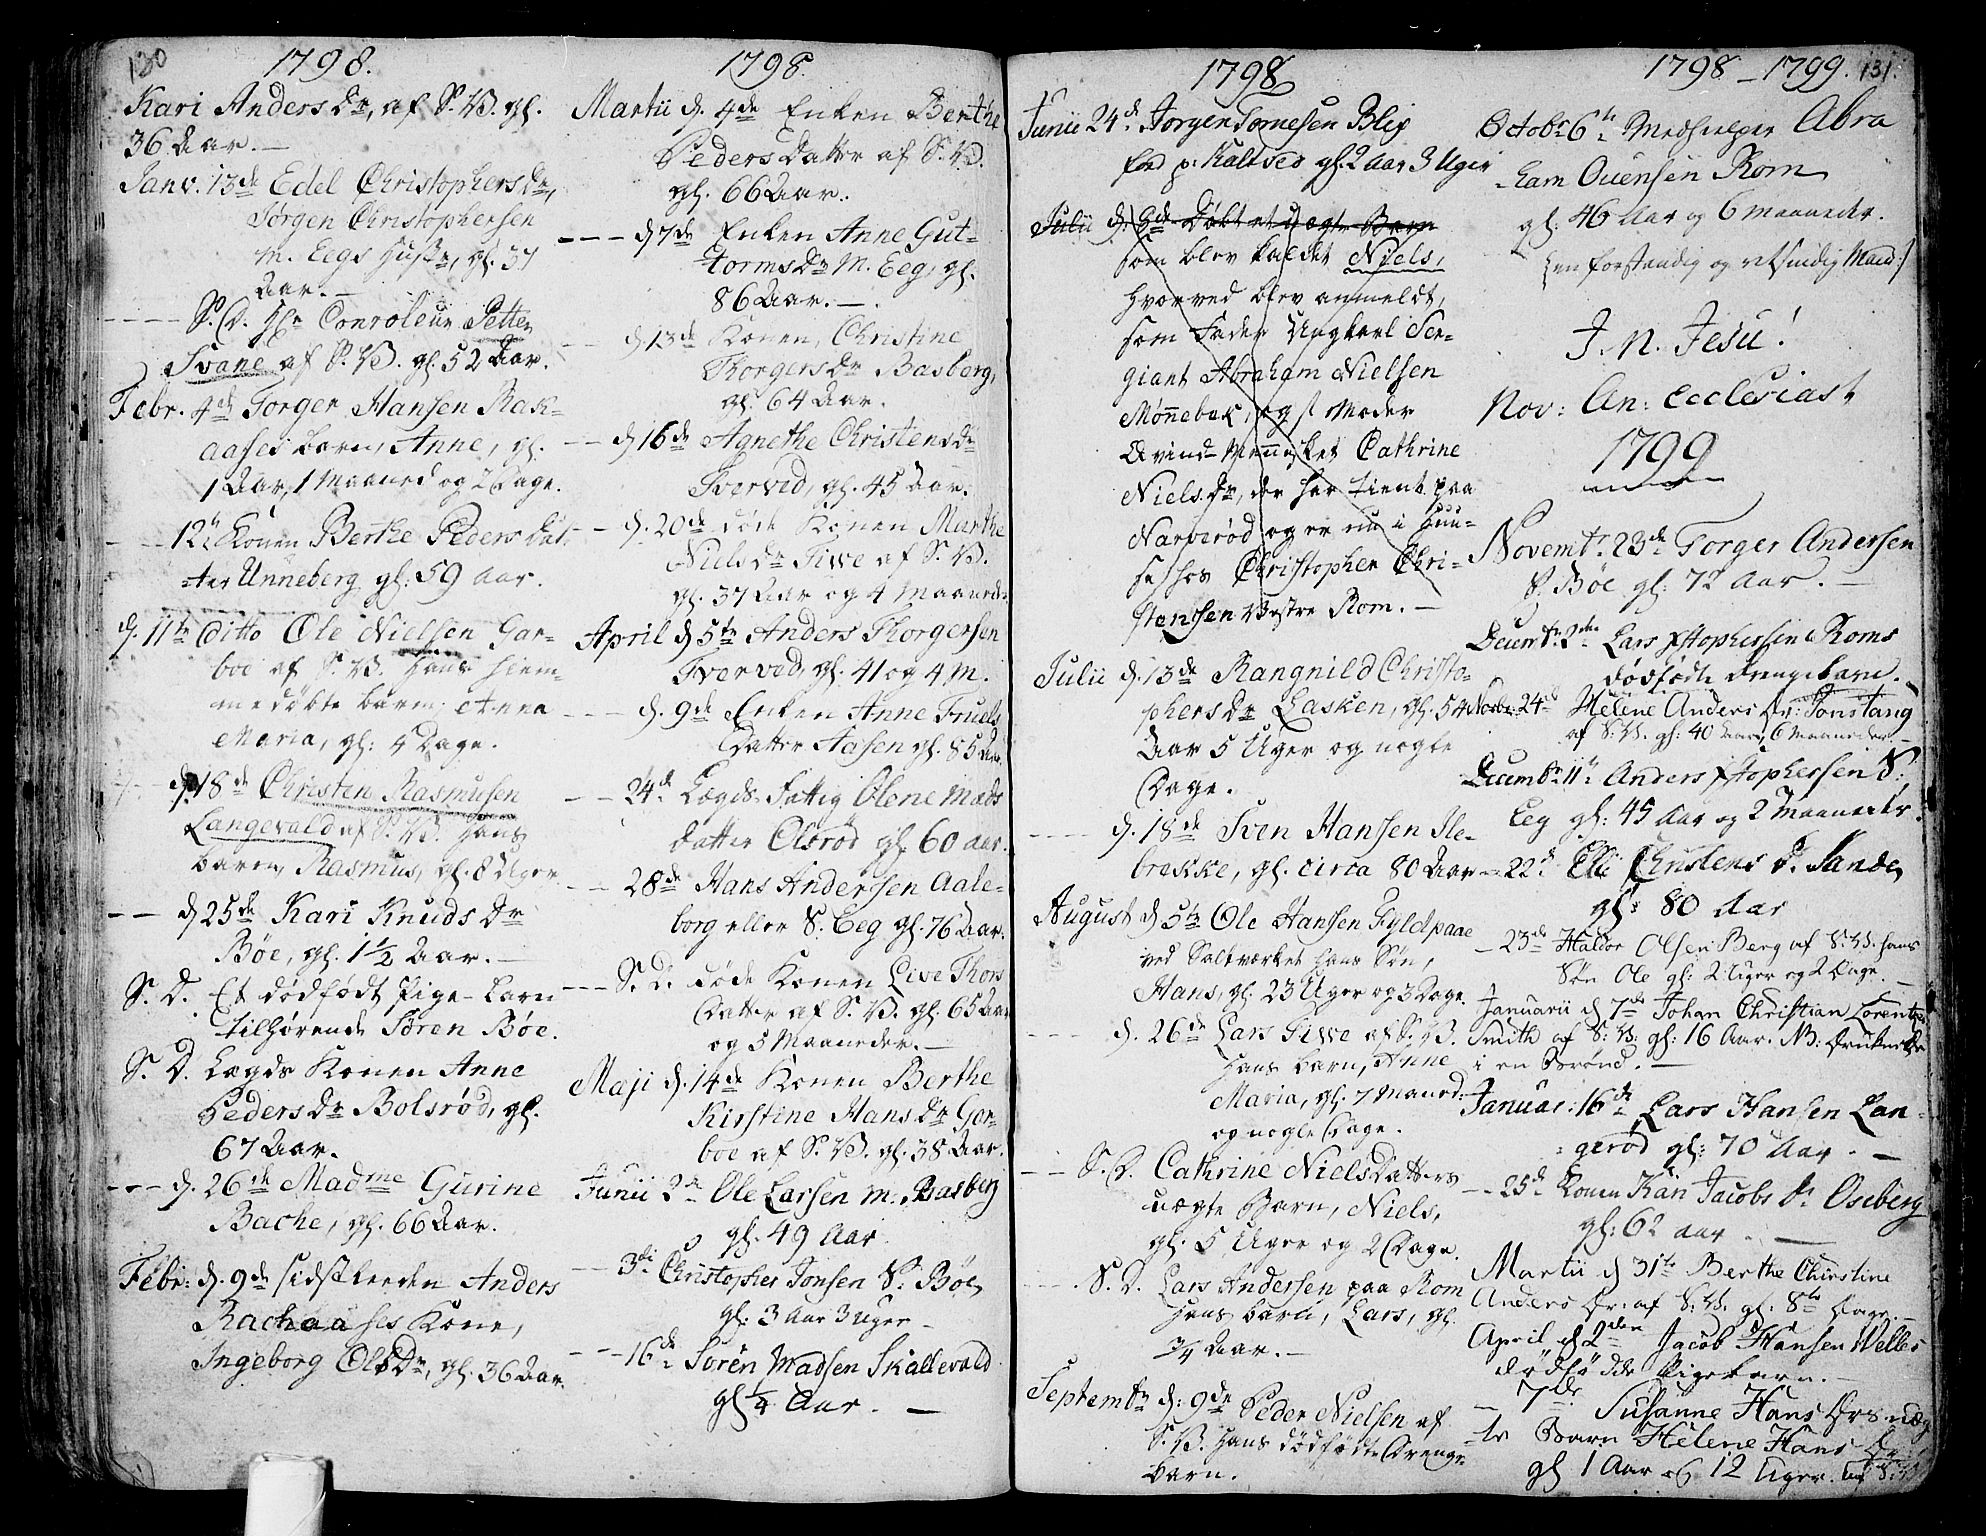 130
1798.
Kari Anders Dr, af S. B. gl.
36 Aar. —
Janv. 13de Edel Christophers Dr,
Jørgen Christophersen
M. Eegs Hustr, gl. 37
Aar. —
S. D. Hr Conroleur Petter
Svane af S. B. gl. 52 Aar.
Febr. 4de Torger Hansen Rak-
aases barn, Anne, gl.
1 Aar, 1 Maaned og 2 Dage.
12te Konen Berthe Peders Dat-
ter Unneberg gl: 59 Aar.
d. 11te Ditto Ole Nielsen Gar-
boe af S. B. hans hiem-
medøbte barn, Anna
Maria, gl: 4 Dage.
d. 18de Christen Rasmusen
Langevald af S. B. hans
barn, Rasmus, gl. 8 Uger
d 25de Kari Knuds Dr
Bøe, gl. 1 1/2 Aar. —
S. D. Et dødfødt Pige-barn
tilhørende Søren Bøe.
S. D. Lægds Konen Anne
Peders Dr Bolsrød, gl.
67 Aar.
d. 26de Madme Gurine
Bache, gl. 66 Aar.
Febr: d. 9de sidstleeden Anders
Rachaases Kone,
Ingeborg Ols Dr, gl. 36 Aar.
1798.
Martii d. 4de Enken Berthe
Peders Datter af S. B.
gl. 66 Aar.
d 7de Enken Anne Gut-
torms Dr M. Eeg, gl.
86 Aar. —
d 13de Konen, Christine
Thorgers Dr Basberg,
gl. 64 Aar.
d 16de Agnethe Christens Dr
Tverved, gl. 45 Aar.
d. 20de døde Konen Marthe
Niels Dr Tiwe af S. B.
gl. 37 Aar og 4 Maaneder
April d 5te Anders Thorgersen
Tverved, gl. 41 og 4 M.
d. 9de Enken Anne Truels
Datter Aasen gl. 85 Aar
24de Lægds Fattig Olene Mads
datter Olsrød gl. 60 aar.
28de Hans Andersen Aale-
borg eller S. Eeg gl. 76 Aar.
S. D. døde Konen Live Thors
Datter af S. B. gl. 65 Aar
og 5 Maaneder. —
Maji d. 14de Konen Berthe
Kirstine Hans Dr Gar-
boe af S. B. gl. 38 Aar.
Junii 2de Ole Larsen M. Basberg
gl. 49 Aar
3di Christopher Jonsen S. Bøe
gl: 3 Aar 3 Uger —
16de Sören Madsen Skallevald
gl 1/4 Aar. —
1798
Junii 24de Jørgen Tornesen Blix
fød p: Kaltved gl. 2 Aar 3 Uger
Julii d. 8de Døbt et uægte Barn
som blev kaldet Niels,
hvorved blev anmeldt,
som Fader Ungkarl Ser-
giant Abraham Nielsen
Mønnebak, og st Moder
Qvinde Mennisket Cathrine
Niels Dr, der har tient paa
Narverød og er nu i Huu-
se hos Christopher Chri-
stensen Vestre Rom. —
Julii d. 13de Rangnild Christo-
phers Dr Lasken, gl. 54
Aar 5 Uger og nogle
Dage.
d. 18de Sven Hansen Ile-
brekke, gl. circa 80 Aar
August d 5te Ole Hansen Fyldpaae
ved Saltværket hans Søn,
Hans, gl. 23 Uger og 3 Dage.
d. 26de Lars Tiwe af S. B.
hans barn, Anne
Maria, gl. 7 Maaned:
og nogle Dage.
S. D. Cathrine Niels Datters
uægte Barn, Niels,
gl. 5 Uger og 2 Dage.
S. D. Lars Andersen paa Rom
hans barn, Lars, gl.
3/4 Aar. —
Septembr d: 9de Peder Nielsen af
S. B. hans dødfødte Drenge-
barn.
1798 – 1799. 131.
Octobr 6te Medhielper Abra
ham Ouensen Rom
gl: 46 Aar og 6 Maaneder.
(en forstandig og retsindig Mand:/
J. N. Jesu!
Nov: An: Ecclesiast
1799
Novembr 23de Torger Andersen
S. Bøe gl: 72 Aar. —
Decembr 2den Lars Xstophersen Roms
dødfødte drengebarn.
Novbr 24de Helene Anders Dr: Tonstang
af S: B. gl: 40 Aar, 6 Maaneder. —
Decembr 11te Anders Xstophersen S:
Eeg gl: 45 Aar og 2 Maaneder.
– 22de Elli Christens dr Sande
gl: 80 Aar
– 23de Haldor Olsen Berg af S: B. hans
Søn Ole gl: 2 Uger og 2 Dage. —
Januarii d 7de Johan Christian Lorentz
Smith af S: B: gl: 16 Aar. NB: druknede
i en Brønd. —
Januar: 16de Lars Hansen Lan-
gerød gl: 70 Aar. —
– 25de Konen Kari Jacobs dr Oseberg
gl: 62 aar. —
Martii d 31te Berthe Christine
Anders Dr: af S: B. gl: 8te Dage. —
April d 2den Jacob Hansen Welles
dödfödde Pigebarn. —
– 7de Susanne Hans Drs uæg
te Barn Helene Hans Dr
gl 1 Aar og 12 Uger. af S: B: